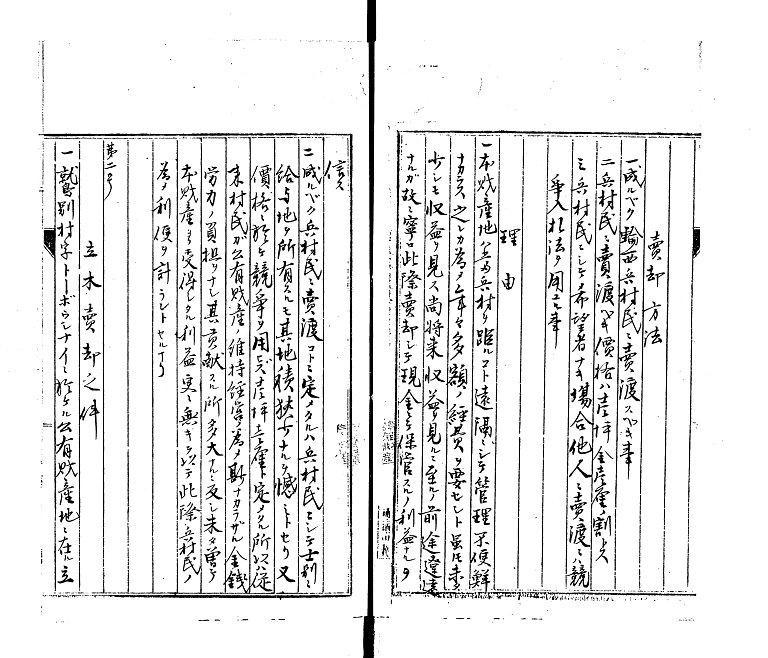 賣却方法
一、成ルベク輪西兵村民ニ賣渡スベキ事
二、兵村民ニ賣渡スベキ價格ハ壱坪金壱厘ノ割トス
三、兵村民ニシテ希望者ナキ場合他人ニ賣渡ニハ競
争入札法ヲ用ユル事
理由
一、本財産地ハ当兵村ヲ距ルコト遠隔ニシテ管理不便鮮
ナカラス之レカ為メ年々多額ノ経費ヲ要セシト雖モ未タ
少シモ収益ヲ見ス尚将来収益ヲ見ルニ至ルノ前途遼遠
ナルガ故ニ寧ロ此際賣却シテ現金ニテ保管スルノ利益ナルヲ
信ス
二、成ルベク兵村民ニ賣渡コトニ定メタルハ兵村民ニシテ士別ニ
給与地ヲ所有スルモ其地積狭少ナルヲ憾ミトセリ又
價格ニ於テ競争ヲ用ヒズ壱坪壱厘ト定メタル所以ハ従
来村民ガ公有財産維持経営ノ為メ尠ナカラザル金銭
労力ノ負担ヲナシ其貢献スル所多大ナルニ反シ未タ曽テ
本財産ヨリ受得シタル利益更ニ無キヲ以テ此際兵村民ノ
為メ利便ヲ計ラントセルナリ
第二号
立木賣却之件
一、鷲別村字トーボシナイニ於ケル公有財産地ニ在ル立